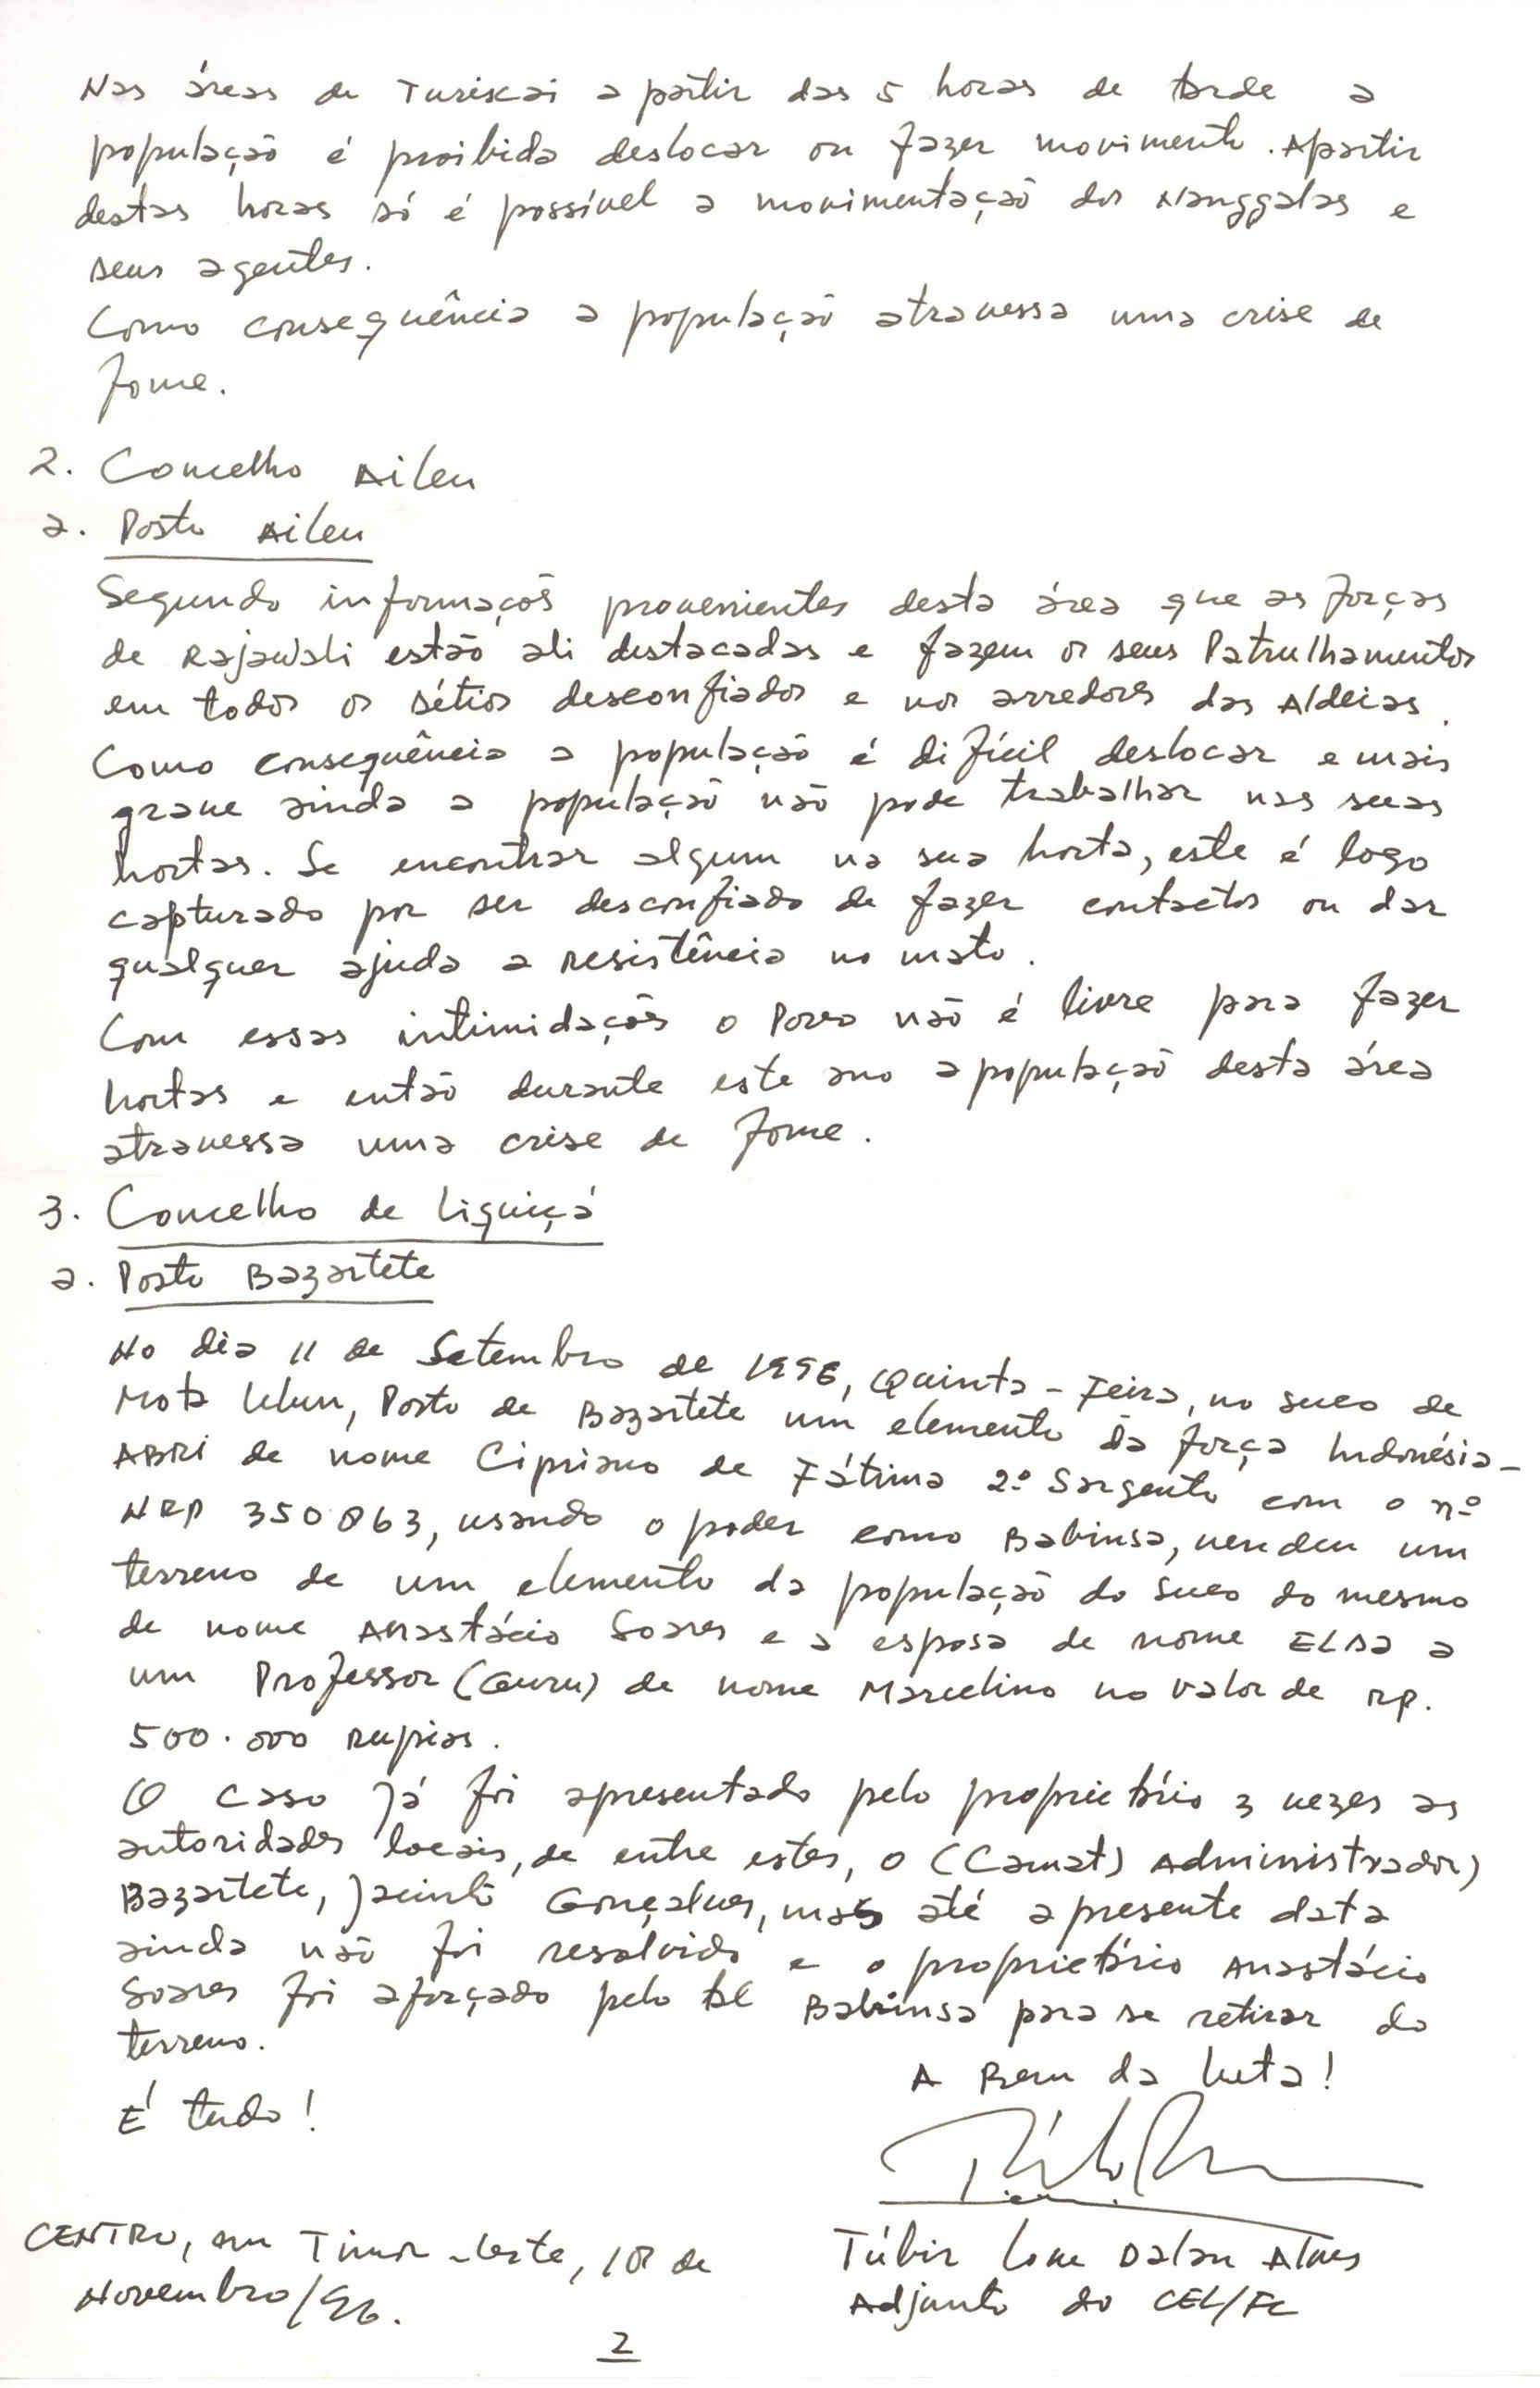 Nas áreas de Turiscai a partir das 5 horas de tarde a
população é proibida deslocar ou fazer movimento. Apartir
destas horas só é possível a movimentação dos Nanggalas e
seus agentes.
Como consequência a população atravessa uma crise de
fome.
2. Concelho Aileu
a. Posto Aileu
Segundo informaçõs provenientes desta área que as forças
de Rajawali estão ali destacadas e fazem os seus Patrulhamentos
em todos os sítios desconfiados e nos arredores das Aldeias.
Como consequência a população é difícil deslocar e mais
grave ainda a população não pode trabalhar nas suas
hortas. Se encontrar algum na sua horta, este é logo
capturado por ser desconfiado de fazer contactos ou dar
qualquer ajuda a resistência no mato.
Com essas intimidações o Povo não é livre para fazer
hortas e então durante este ano a população desta área
atravessa uma crise de fome.
3. Concelho de Liquiçá
a. Posto Bazartete
No dia 11 de Setembro de 1996, Quinta-Feira, no suco de
Mota Ulun, Posto de Bazartete um elemento da força Indonésia-
ABRI de nome Cipriano de Fátima 2º Sargento com o nº
NRP 350863, usando o poder como Babinsa, vendeu um
terreno de um elemento da população do suco do mesmo
de nome Anastácio Soares e a esposa de nome ELSA a
um Professor (Guru) de nome Marcelino no valor de Rp.
500.000 rupias.
O caso já foi apresentado pelo proprietário 3 vezes as
autoridades locais, de entre estes, o (Camat) Administrador)
Bazartete, Jacinto Gonçalves, mas até apresente data
ainda não foi resolvido e o proprietário Anastácio
Soares foi aforçado pelo tal Babinsa para se retirar do
terreno.
A Bem da Luta!
É tudo!
Túbir Loke Dalan Alves
Adjunto do CEL/FC
CENTRO, em Timor-Leste, 18 de
Novembro/96.
2